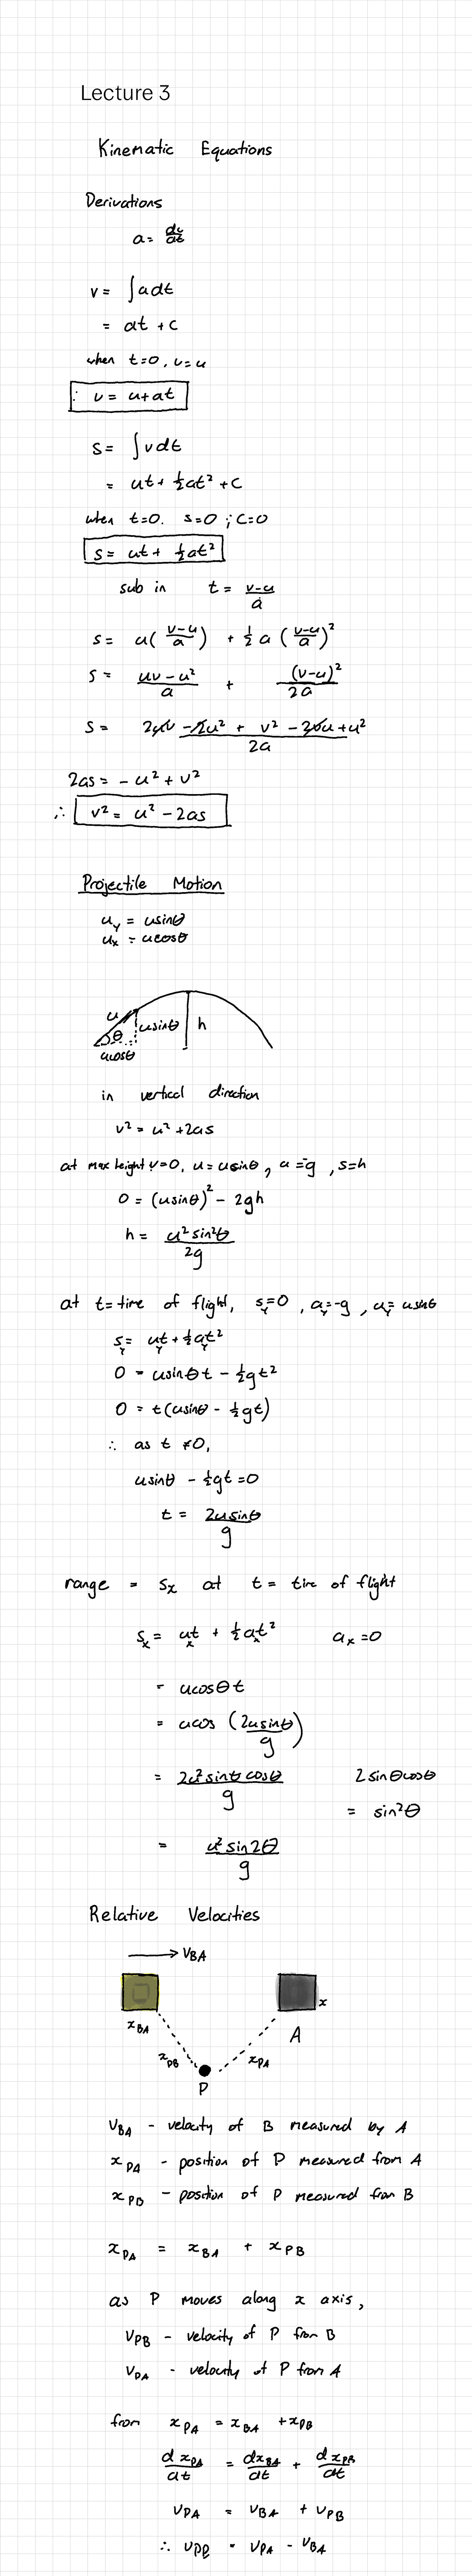 Lecture 3
Kinematic Equations
Derivations
a = dv/dt
v = ∫a dt
= at + c
when t=0, v=u
∴ v = u+at
s = ∫v dt
= ut + ½at² + C
when t=0. s=0 ; C=0
s = ut + ½at²
sub in t = (v-u)/a
s = u((v-u)/a) + ½ a ((v-u)/a)²
s = (uv-u²)/a + (v-u)²/2a
s = (2uv - 2u² + v² - 2vu + u²)/2a
2as = -u² + v²
∴ v² = u² - 2as
Projectile Motion
u_y = usinθ
u_x = ucosθ
u usinθ h
θ
ucosθ
in vertical direction
v² = u² + 2as
at max height v=0, u = usinθ, a = -g, s=h
0 = (usinθ)² - 2gh
h = u²sin²θ/2g
at t = time of flight, s_y=0, a_y=-g, u_y = usinθ
s_y = u_y t + ½a_y t²
0 = usinθt - ½gt²
0 = t(usinθ - ½gt)
∴ as t ≠0,
usinθ - ½gt = 0
t = 2usinθ/g
range = s_x at t = time of flight
s_x = u_x t + ½a_x t² a_x = 0
= ucosθt
= ucos (2usinθ/g)
= 2u²sinθcosθ/g 2sinθcosθ
= sin²θ
= u²sin2θ/g
Relative Velocities
→ V_BA
x
x_BA A
x_PB x_PA
P
V_BA - velocity of B measured by A
x_PA - position of P measured from A
x_PB - position of P measured from B
x_PA = x_BA + x_PB
as P moves along x axis,
V_PB - velocity of P from B
V_PA - velocity of P from A
from x_PA = x_BA + x_PB
dx_PA/dt = dx_BA/dt + dx_PB/dt
V_PA = V_BA + V_PB
∴ V_PB = V_PA - V_BA